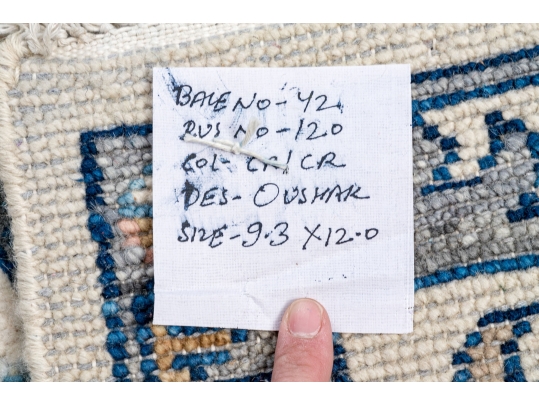 BALE NO-42
RUS NO-120
COL- CR/CR
DES- OUSHAK
SIZE-9.3 X12.0